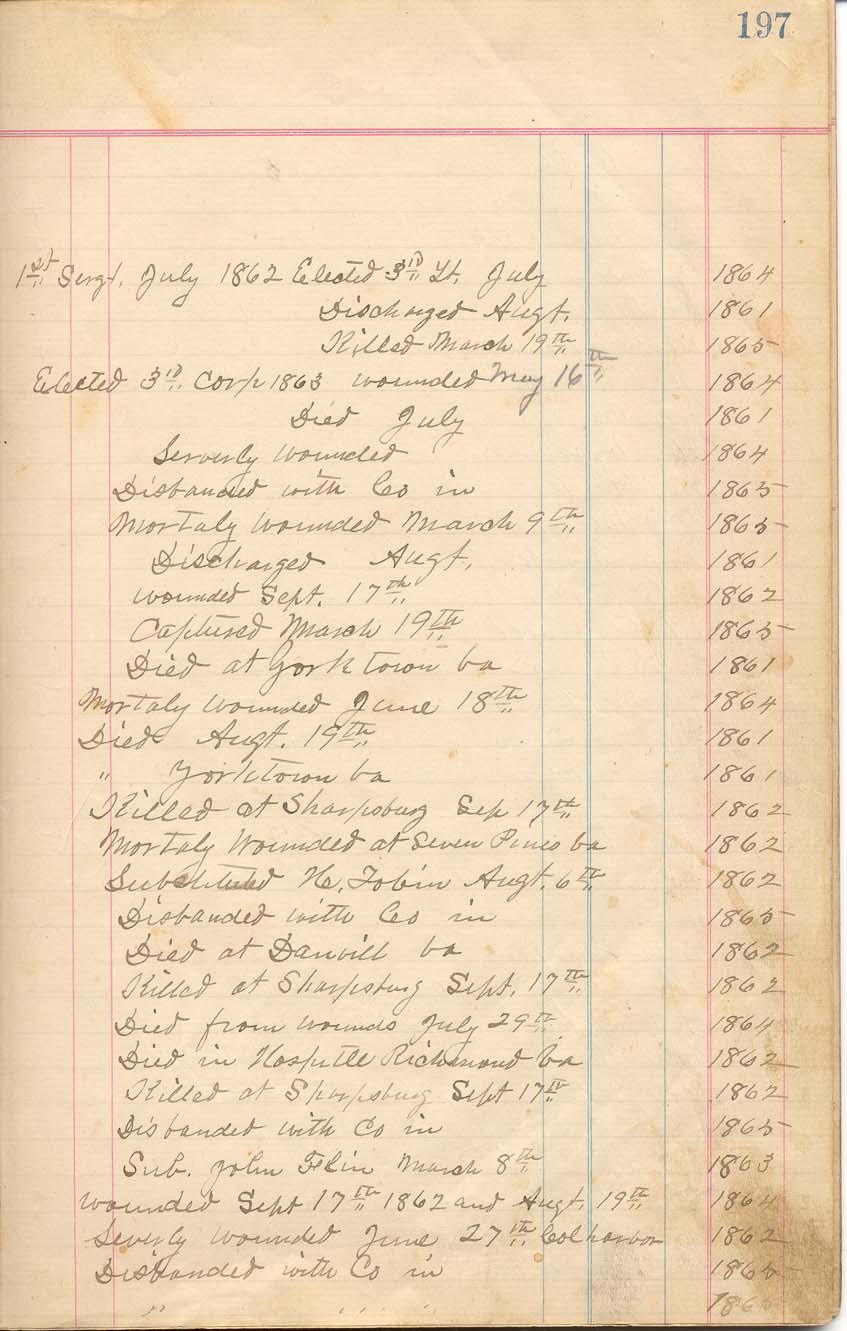 197
1st Sergt. July 1862 Elected 3rd Lt. July 1864
Discharged Augt. 1861
Killed March 19th 1865
Elected 3rd Corp 1863 wounded May 16th 1864
Died July 1861
Serverly wounded 1864
Disbanded with Co in 1865
Mortaly wounded March 9th 1865
Discharged Augt. 1861
wounded Sept. 17th 1862
Captured March 19th 1865
Died at York town Va 1861
Mortaly wounded June 18th 1864
Died Augt. 19th 1861
" Yorktown Va 1861
Killed at Sharpsburg Sep 17th 1862
Mortaly Wounded at Seven Pines Va 1862
Substituted H. Tobin Augt. 6th 1862
Disbanded with Co in 1865
Died at Danvill Va 1862
Killed at Sharpsburg Sept. 17th 1862
Died from wounds July 29th 1864
Died in Hospitle Richmond Va 1862
Killed at Sharpsburg Sept 17th 1862
Disbanded with Co in 1865
Sub. John Flin March 8th 1863
wounded Sept 17th 1862 and Augt. 19th 1864
Severly wounded June 27th Colharbor 1862
Disbanded with Co in 1865
" " " " 1865